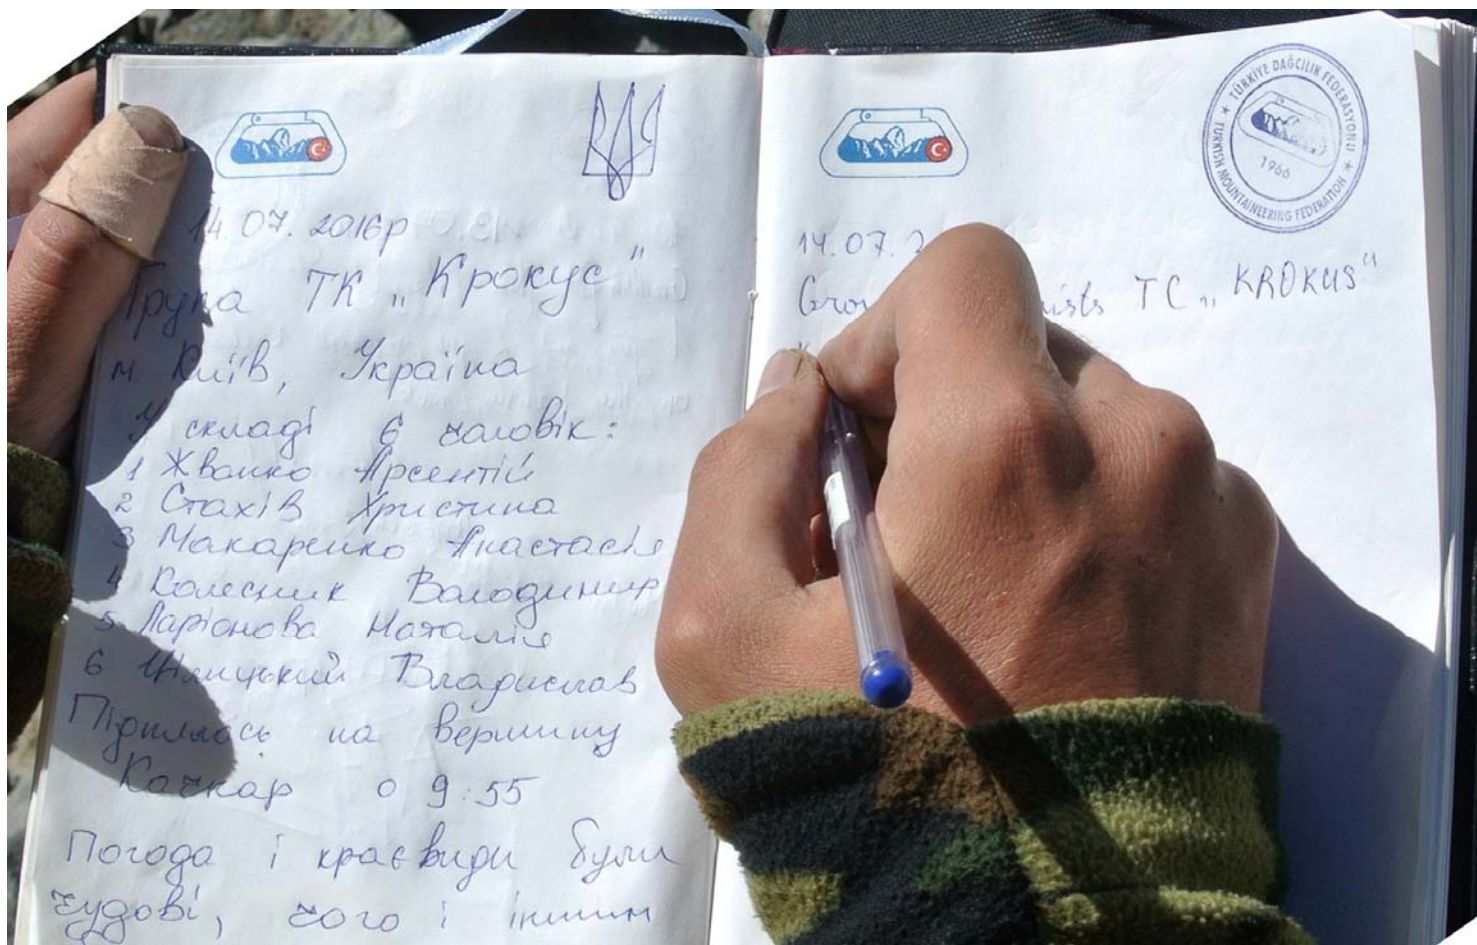 14.07.2016р
Група ТК „Крокус"
м Київ, Україна
У складі 6 чоловік:
1 Жванко Арсентій
2 Стахів Христина
3 Макаренко Анастасія
4 Колесник Володимир
5 Ларіонова Наталія
6 Владислав
Піднялась на вершину
Качкар о 9:55
Погода і краєвиди були
чудові, чого і іншим
TÜRKİYE DAĞCILIK FEDERASYONU
1966
TURKISH MOUNTAINEERING FEDERATION
14.07.2
TC „KROKUS"